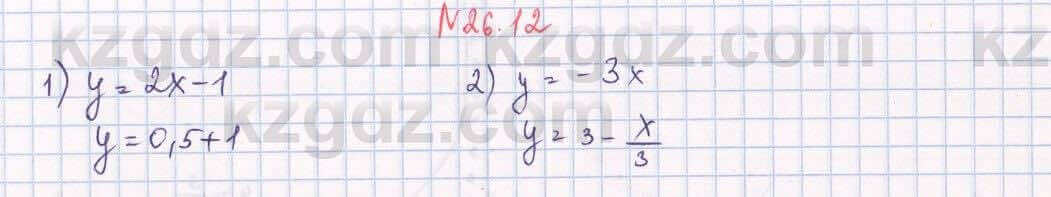 N26.12
kzgdz.com kzgdz.com kz
1) y = 2x - 1
2) y = -3x
kzgdz.com
y = 0,5 + 1
y = 3 - x/3